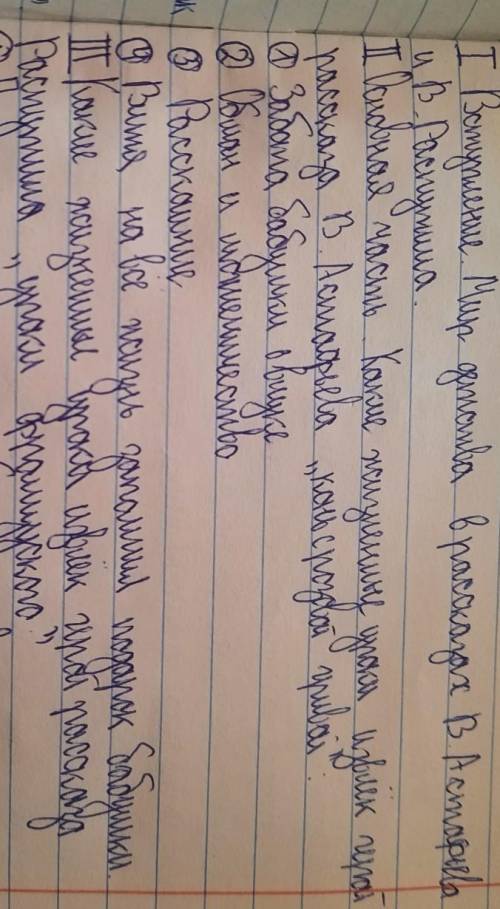 I Вступление. Мир детства в рассказах В. Астафьева
и В. Распутина.
II Основная часть. Какие жизненные уроки извлёк герой
рассказа В. Астафьева „конь с розовой гривой"
① Забота бабушки о внуке
② Обман и мошенничество
③ Расскаяние
④ Витя на всю жизнь запомнил подарок бабушки.
III Какие жизненные уроки извлёк герой рассказа
Распутина „уроки французского"